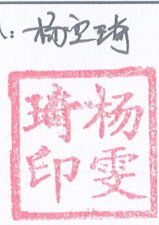 :杨雯琦
杨雯
琦印